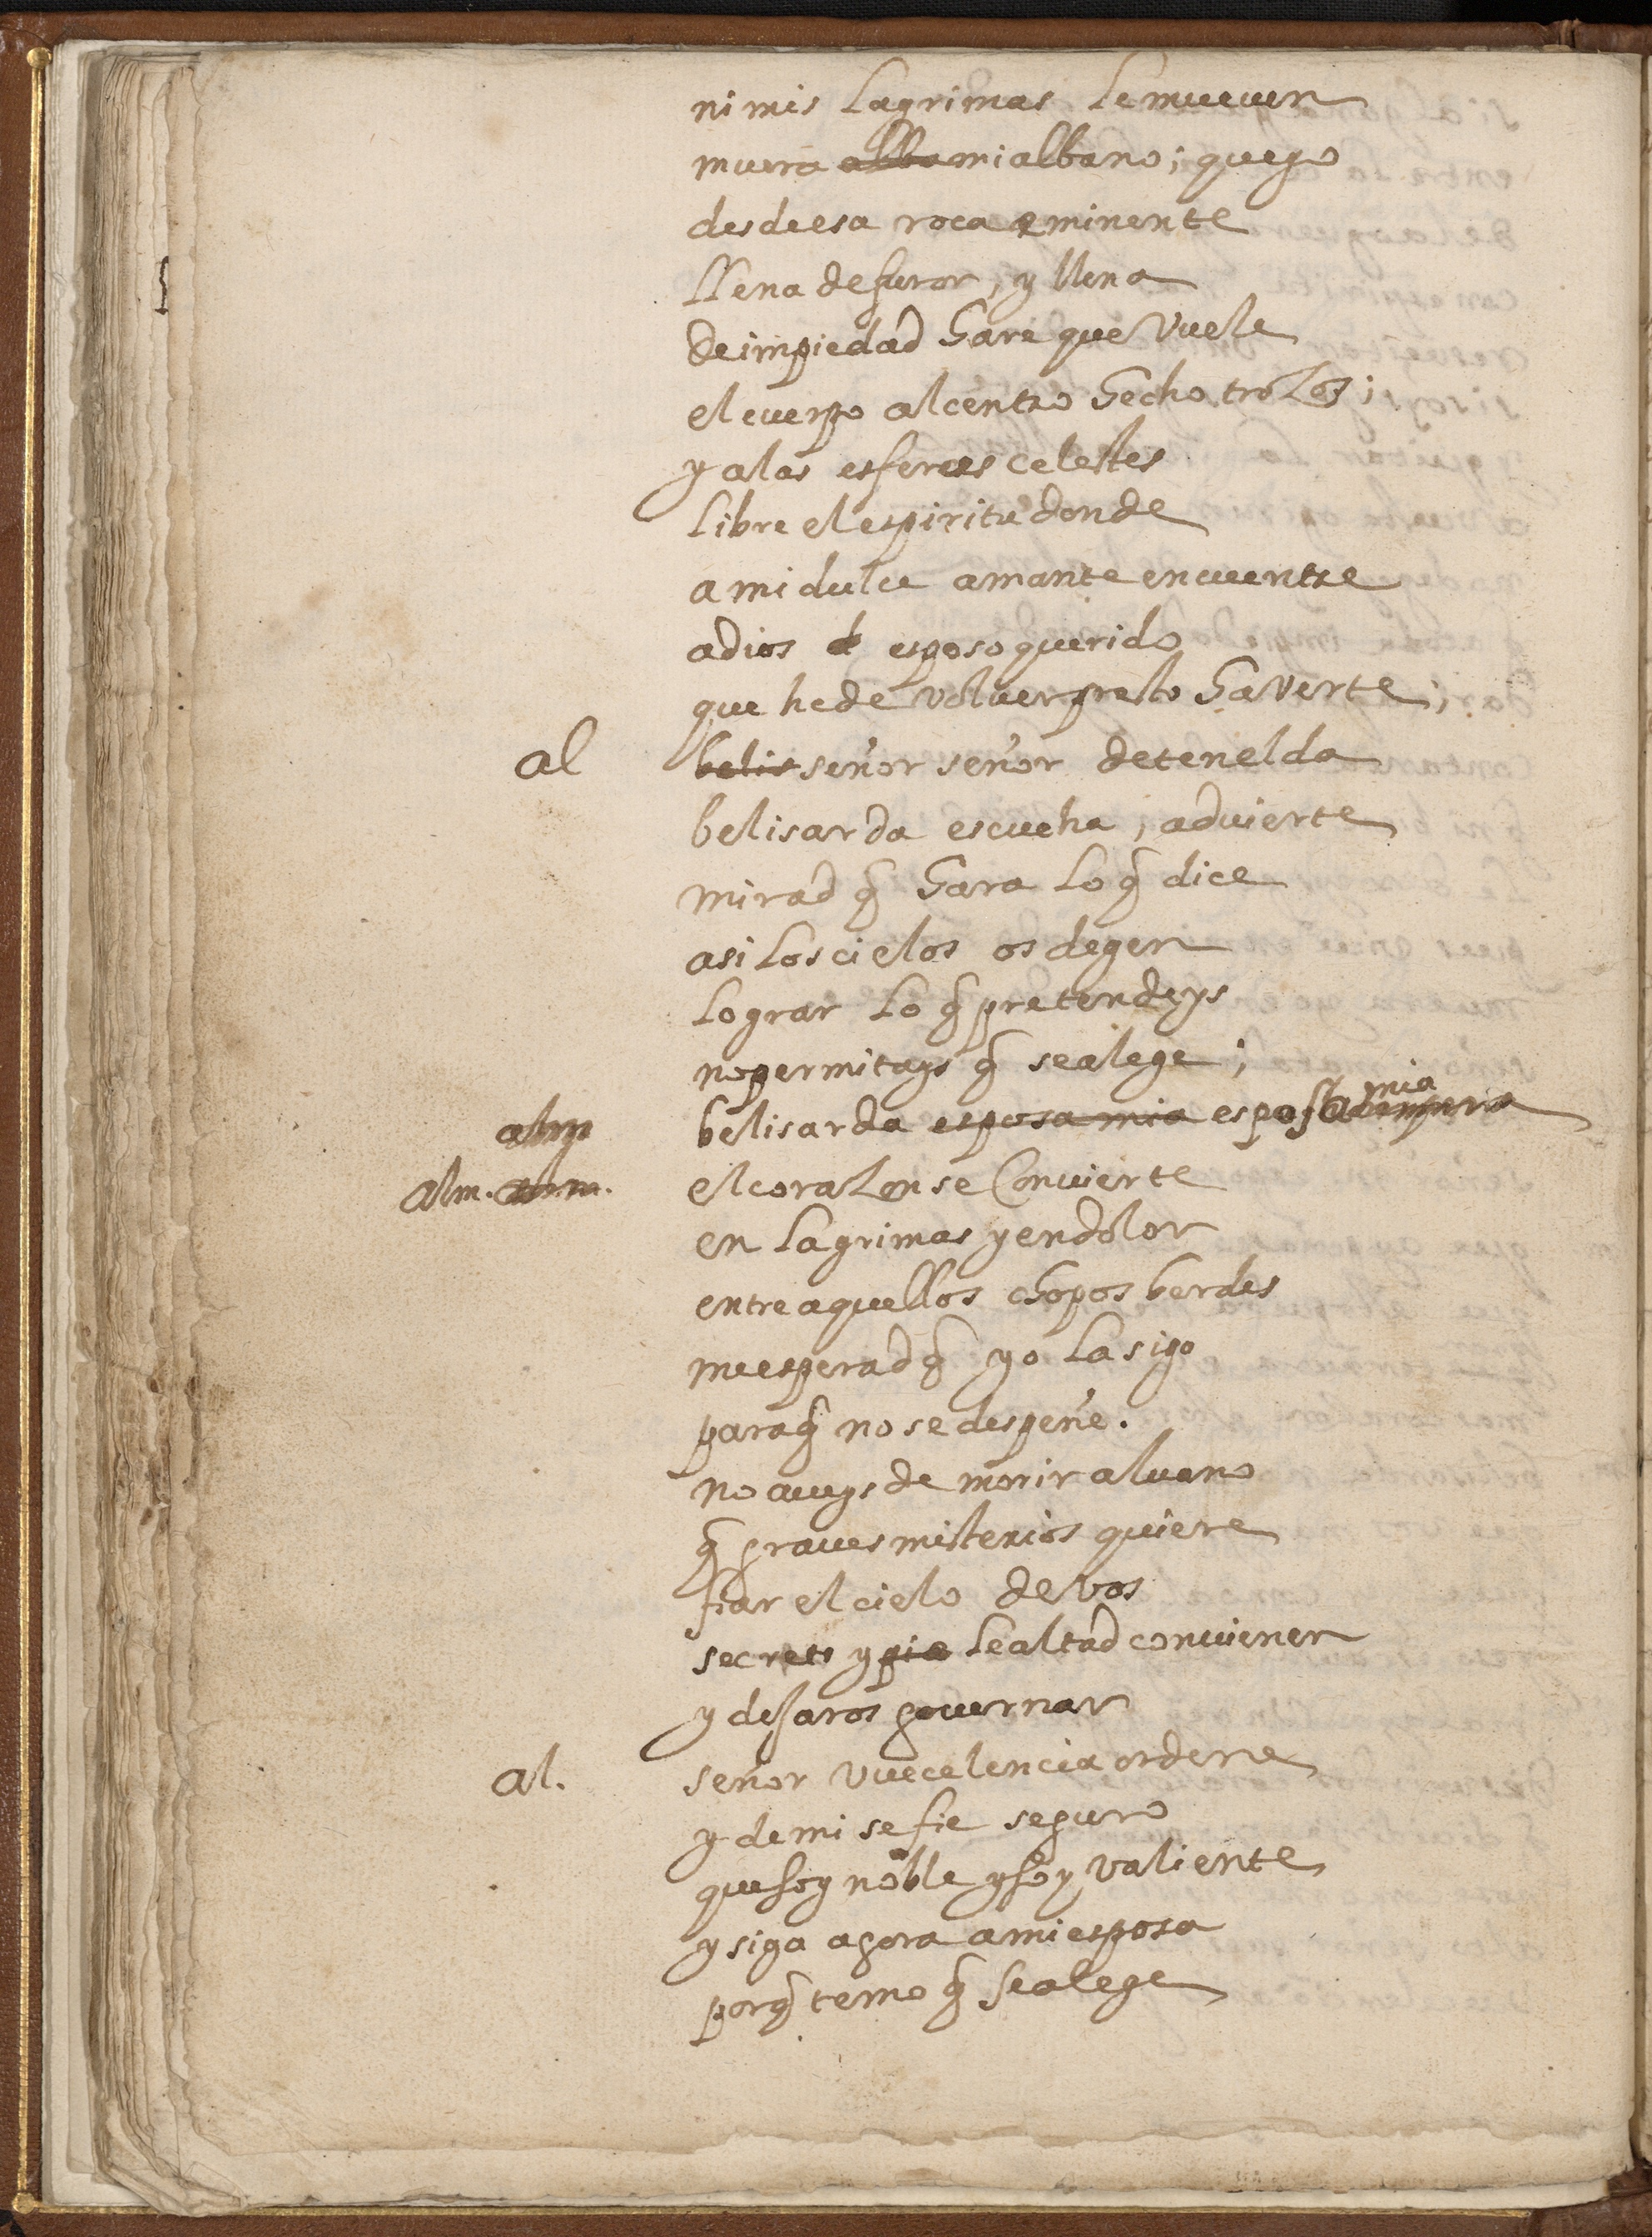 ni mis lagrimas le mueuen
muera alba mi albano; que yo
desde esa roca eminente
llena de furor, y llena
de impiedad hare que vuele
el cuerpo al centro hecho troços;
y a las esferas celestes
libre el espiritu donde
a mi dulce amante encuentre
adios d esposo querido
que he de voluer presto ha verte;
al belis señor señor detenelda
belisarda escucha, aduierte
mirad q̃ hara lo q̃ dice
asi los cielos os degen
lograr lo q̃ pretendeys
no permitays q̃ se alege;
belisarda esposa mia esposa mia
alm. alm. el coraçon se conuierte
en lagrimas y en dolor
entre aquellos chopos berdes
me esperad q̃ yo la sigo
para q̃ no se despeñe.
no aueys de morir aluano
q̃ graues misterios quiere
fiar el cielo de vos
secreto y pie lealtad conuienen
y dejaros gouernar
al. señor vuecelencia ordene
y de mi se fie seguro
que soy noble y soy valiente
y siga agora a mi esposa
porq̃ temo q̃ se alege